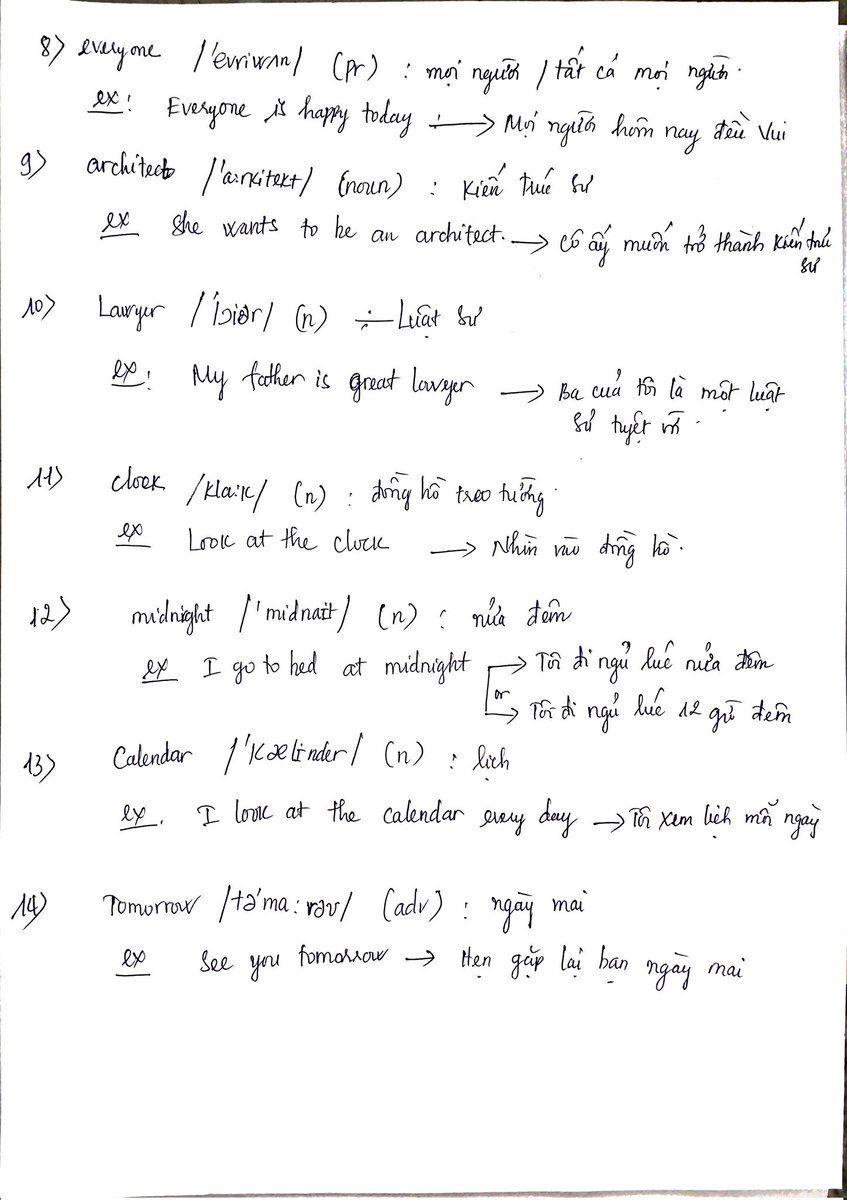 8) everyone /'evriwʌn/ (pr) : mọi người / tất cả mọi người.
ex: Everyone is happy today : → Mọi người hôm nay đều vui
9) architect /'a:rkitekt/ (noun) : kiến trúc sư
ex She wants to be an architect. → Cô ấy muốn trở thành kiến trúc
sư
10) Lawyer /'lɔiər/ (n) : Luật sư
ex: My father is great lawyer → Ba của tôi là một luật
sư tuyệt vời.
11) clock /kla:k/ (n) : đồng hồ treo tường.
ex Look at the clock → Nhìn vào đồng hồ.
12) midnight /'midnait/ (n) : nửa đêm
ex I go to bed at midnight → Tôi đi ngủ lúc nửa đêm
or
→ Tôi đi ngủ lúc 12 giờ đêm
13) Calendar /'kælindər/ (n) : lịch
ex. I look at the calendar every day → Tôi xem lịch mỗi ngày
14) Tomorrow /tə'ma:rəʊ/ (adv) : ngày mai
ex See you tomorrow → Hẹn gặp lại bạn ngày mai